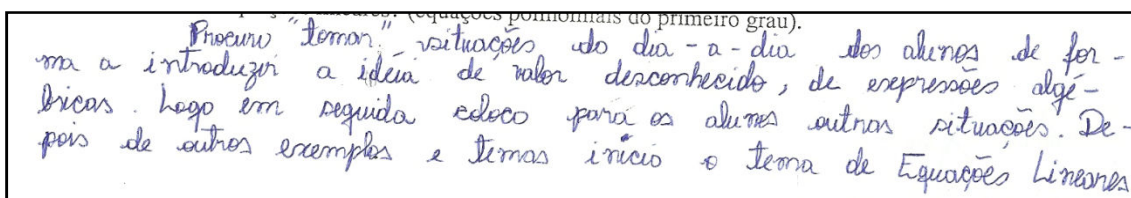 (equações polinomiais do primeiro grau).
Procuro "tomar" situações do dia-a-dia dos alunos de for-
ma a introduzir a idéia de valor desconhecido, de expressões algé-
bricas. Logo em seguida coloco para os alunos outras situações. De-
pois de outros exemplos e temas início o tema de Equações Lineares